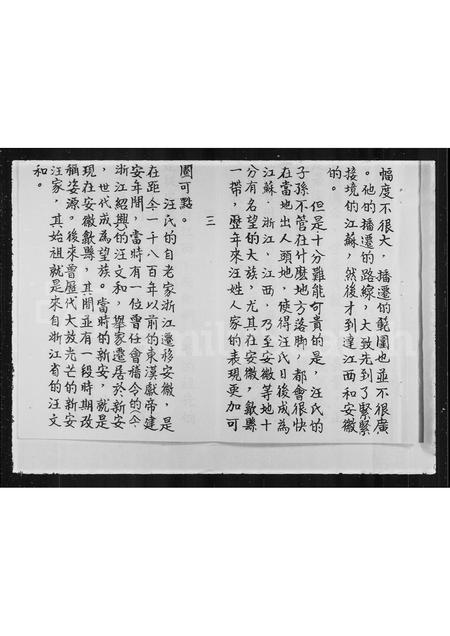 幅度不很大，播遷的範圍也並不很廣
。他的播遷的路線，大致先到了緊緊
接境的江蘇，然後才到達江西和安徽
的。
但是十分難能可貴的是，汪氏的
子孫不管在什麼地方落脚，都會很快
在當地出人頭地，使得汪氏日後成為
江蘇．浙江．江西，乃至安徽等地十
分有名望的大族，尤其在安徽，歙縣
一帶，歷年來汪姓人家的表現更加可
圈可點。
三
汪氏的自老家浙江遷移安徽，是
在距今一千八百年以前的東漢獻帝建
安年間，當時有一位曾任會稽令的
浙江紹興的汪文和，舉家遷居於新安
，世代成為望族。當時的新安，就是
現在安徽歙縣，其間並有一段時期改
稱婺源。後來曾歷代大放光芒的新安
汪家，其始祖就是來自浙江省的汪文
和。